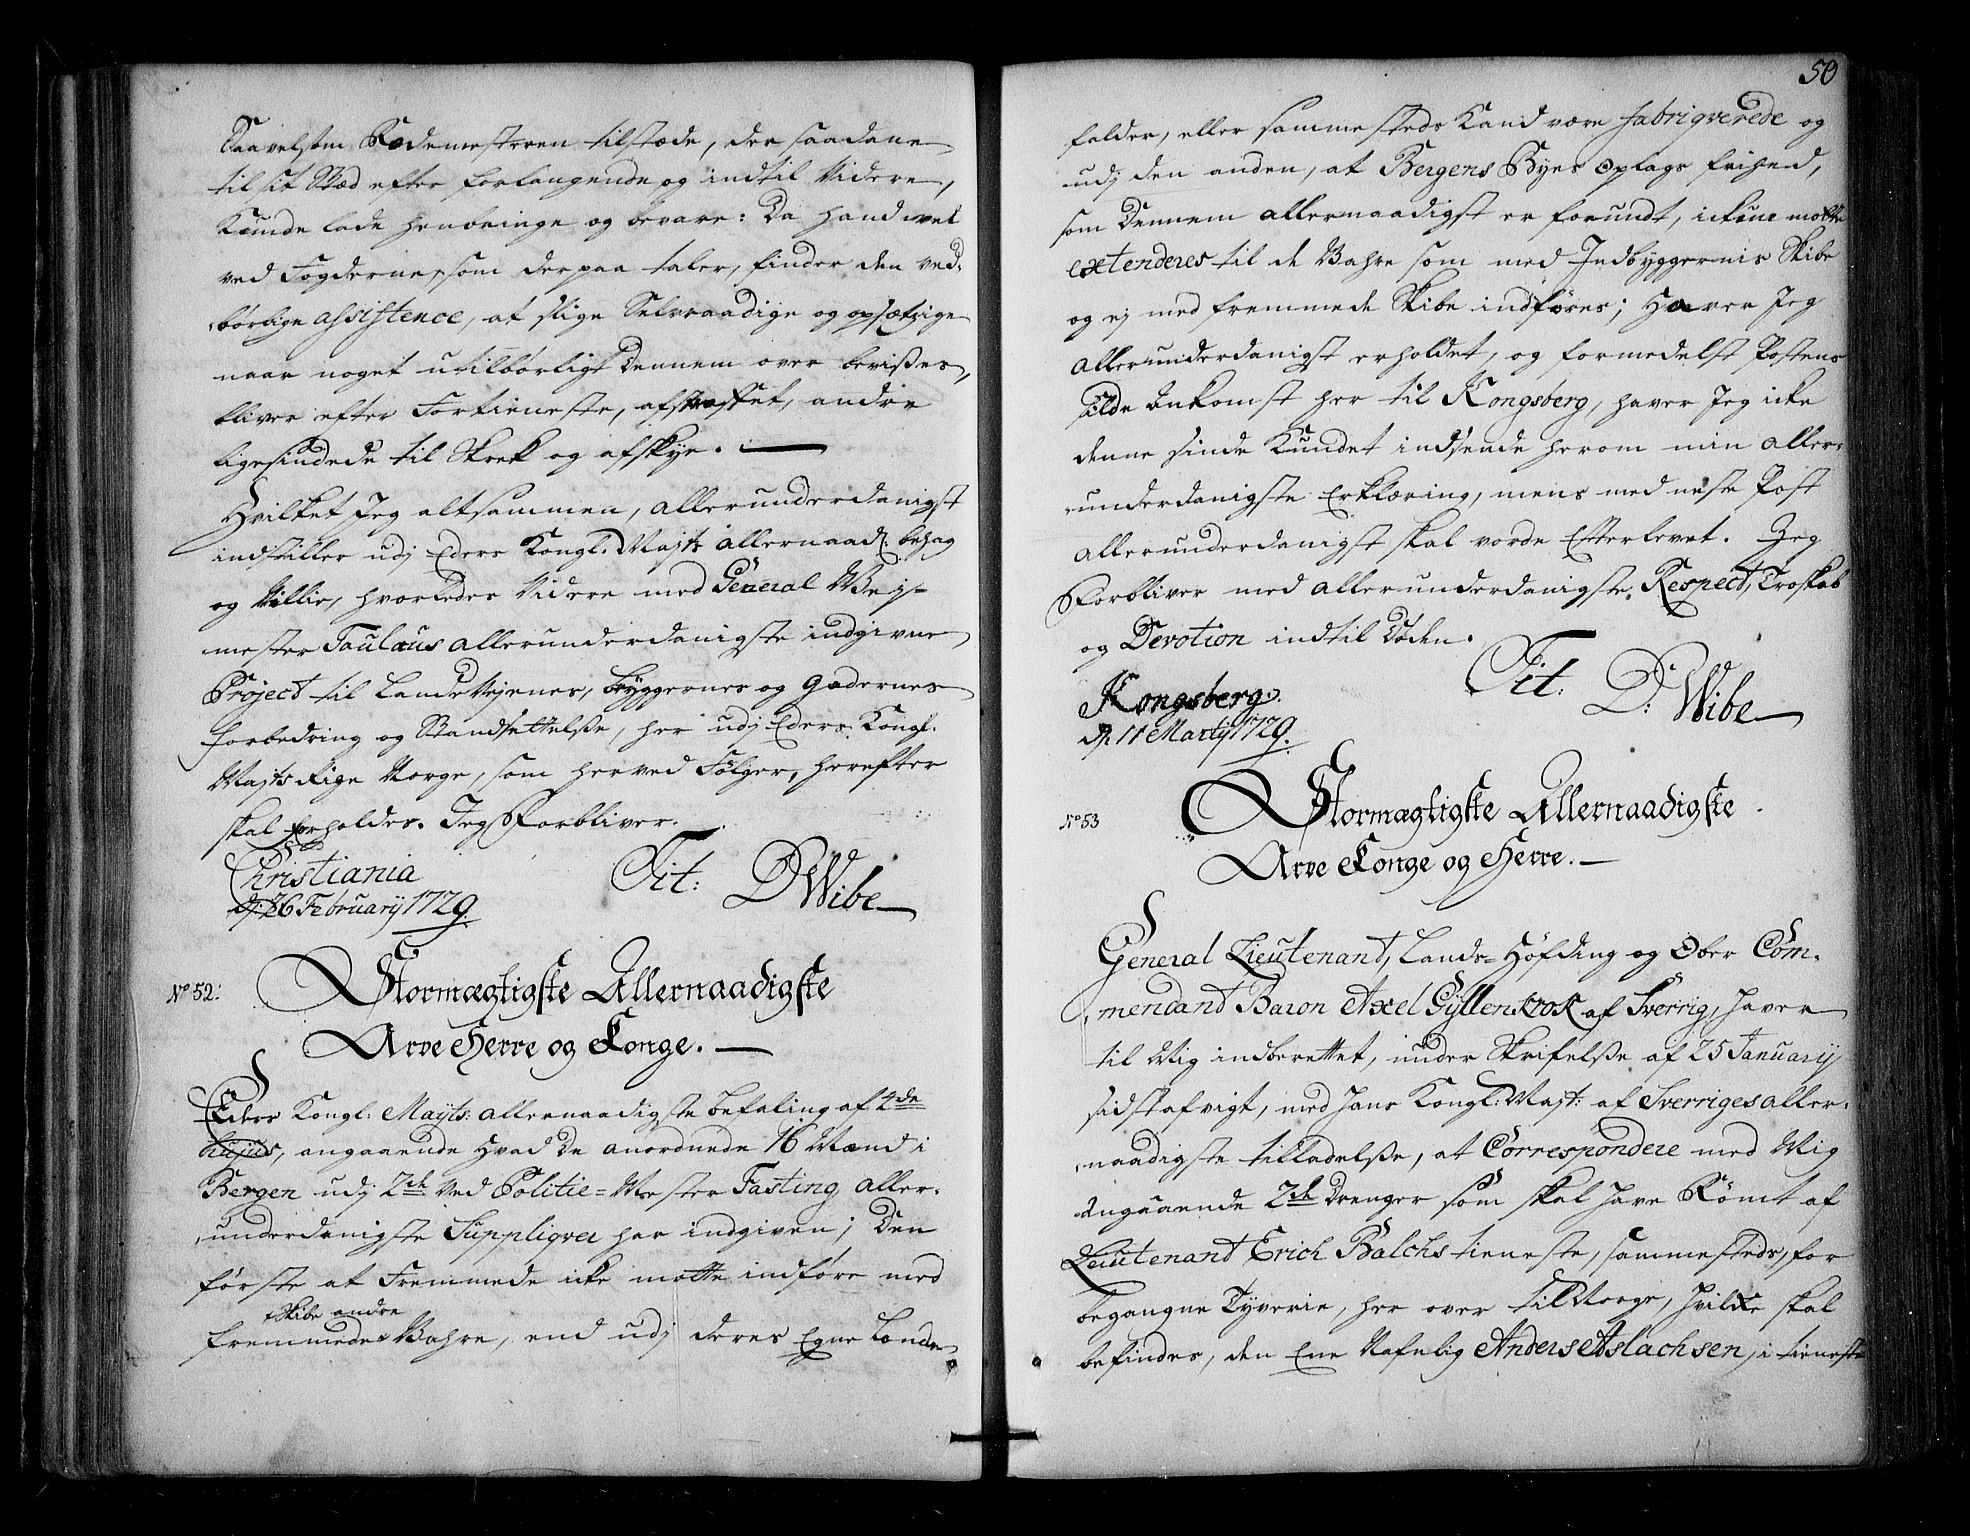 Saavelsom Rodemesteren tilstæde, der saadane
til sit Stæd efter forlangende og indtil Videre,
Kunde lade henbringe og bevare: Da hand vel
ved Fogderne, som derpaa taler, finder den ved-
børlige assistence, at slige Selvraadige og opsætzige
naar noget utilbørligt Dennem over bevißes,
bliver efter Fortieneste, afstraffet, andre
ligesindede til Skrek og afskye. —
Hvilket Jeg altsammen, allerunderdanigst
indstiller udj Eders Kongl. Majts allernaad: behag
og Villie, hvorledes Videre med General Vej-
mester Paulæus allerunderdanigste indgivne
Project til LandeVejenes, bryggernes og Gadernes
forbedring og Standsettelße, her udj Eders Kongl.
Majts Rige Norge, som herved følger, herefter
skal forholdes. Jeg Forbliver.
Christiania
d: 26 February 1729.
Tit: D Wibe
No 52. Stormægtigste Allernaadigste
Arve Herre og Konge. —
Eders Kongl: Mayts: allernaadigste befaling af 4de
hujus, angaaende Hvad De anordnede 16 Mænd i
Bergen udj 2de Ved Politie-Mester Fasting aller-
underdanigste Suppliqver har indgiven; Den
første at Fremmede icke motte indføre med
Skibe andre
fremmede Vahre, end udj deres Egne Lande
50
falder, eller sammesteds Kand være fabriqverede og
udj den anden, at Bergens Byes Oplags frihed,
som Dennem allermaadigst er forundt, ickun motte
extenderes til de Vahre som med Indbyggernis Skibe
og ej med fremmede Skibe indføres; Haver Jeg
allerunderdanigst erholdet, og formedelst Postens
silde Ankomst her til Kongsberg, haver Jeg icke
denne sinde Kundet indsende herom min aller-
underdanigste Erklæring, mens med neste Post
allerunderdanigst skal vorde Efterlevet. Jeg
Forbliver med allerunderdanigste Respect, Troskab
og Devotion indtil Døden.
Tit: D: Wibe
Kongsberg.
d. 11 Martij 1729.
No 53 Stormægtigste Allernaadigste
Arve Konge og Herre. —
General Lieutenant, Lands-Høfding og Ober Com-
mendant Baron Axel Gyllenkrok af Sverrig, haver
til Mig indberettet, under Skrifelße af 25 January
sidst afvigt, med Hans Kongl: Majt: af Sverriges aller-
naadigste tilladelße, at Correspondere med Mig
Angaaende 2de Drenger som skal have Rømt af
Lieutenant Erich Balchs tieneste, sammesteds, for
begangne Tyverie, her over til Norge, Hvilke skal
befindes, den Ene Nafnlig Anders Aslachsen, i tieneste